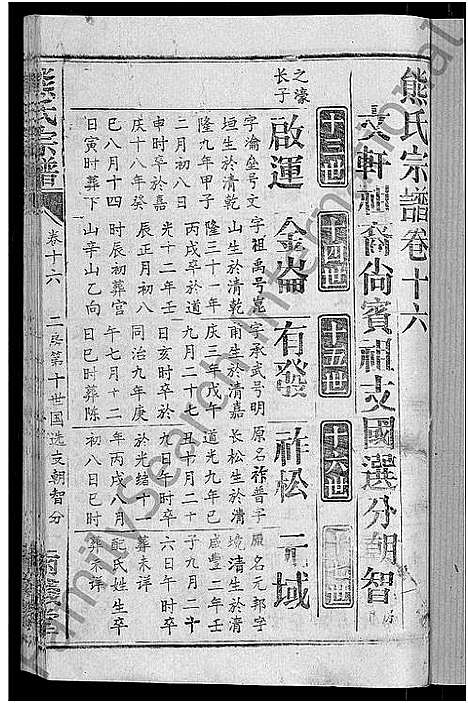 熊氏宗譜卷十六
長軒祖裔尚賓祖支國選分朝智房
十三世
十四世
十五世
十六世
十七世
之濠長子
啟運
字淪垒号文
垣生於清乾
隆九年甲子
二月初八日
申時卒於嘉
庆十八年癸
巳八月十四
日寅时葬下
金崙
字祖禹号崑
山生於清乾
隆三十一年
丙戌卒於道
光十二年壬
辰正月初六
时辰初葬宫
山辛山乙向
有發
字承武号明
甫生於清嘉
庆三年戊午
九月二十七
日亥时卒於
同治九年庚
午七月十二
日巳時葬陈
祚松
原名祚普字
长松生於清
道光九年己
丑十月二十
九日午時卒
於光绪十一
年丙戌八月
初八日巳时
元域
原名元邦字
境清生於清
咸豐二年壬
子九月二十
六日午时卒
葬未详
配氏姓生卒
葬未详
熊氏宗譜
卷十六
二房第十世国选支朝智分